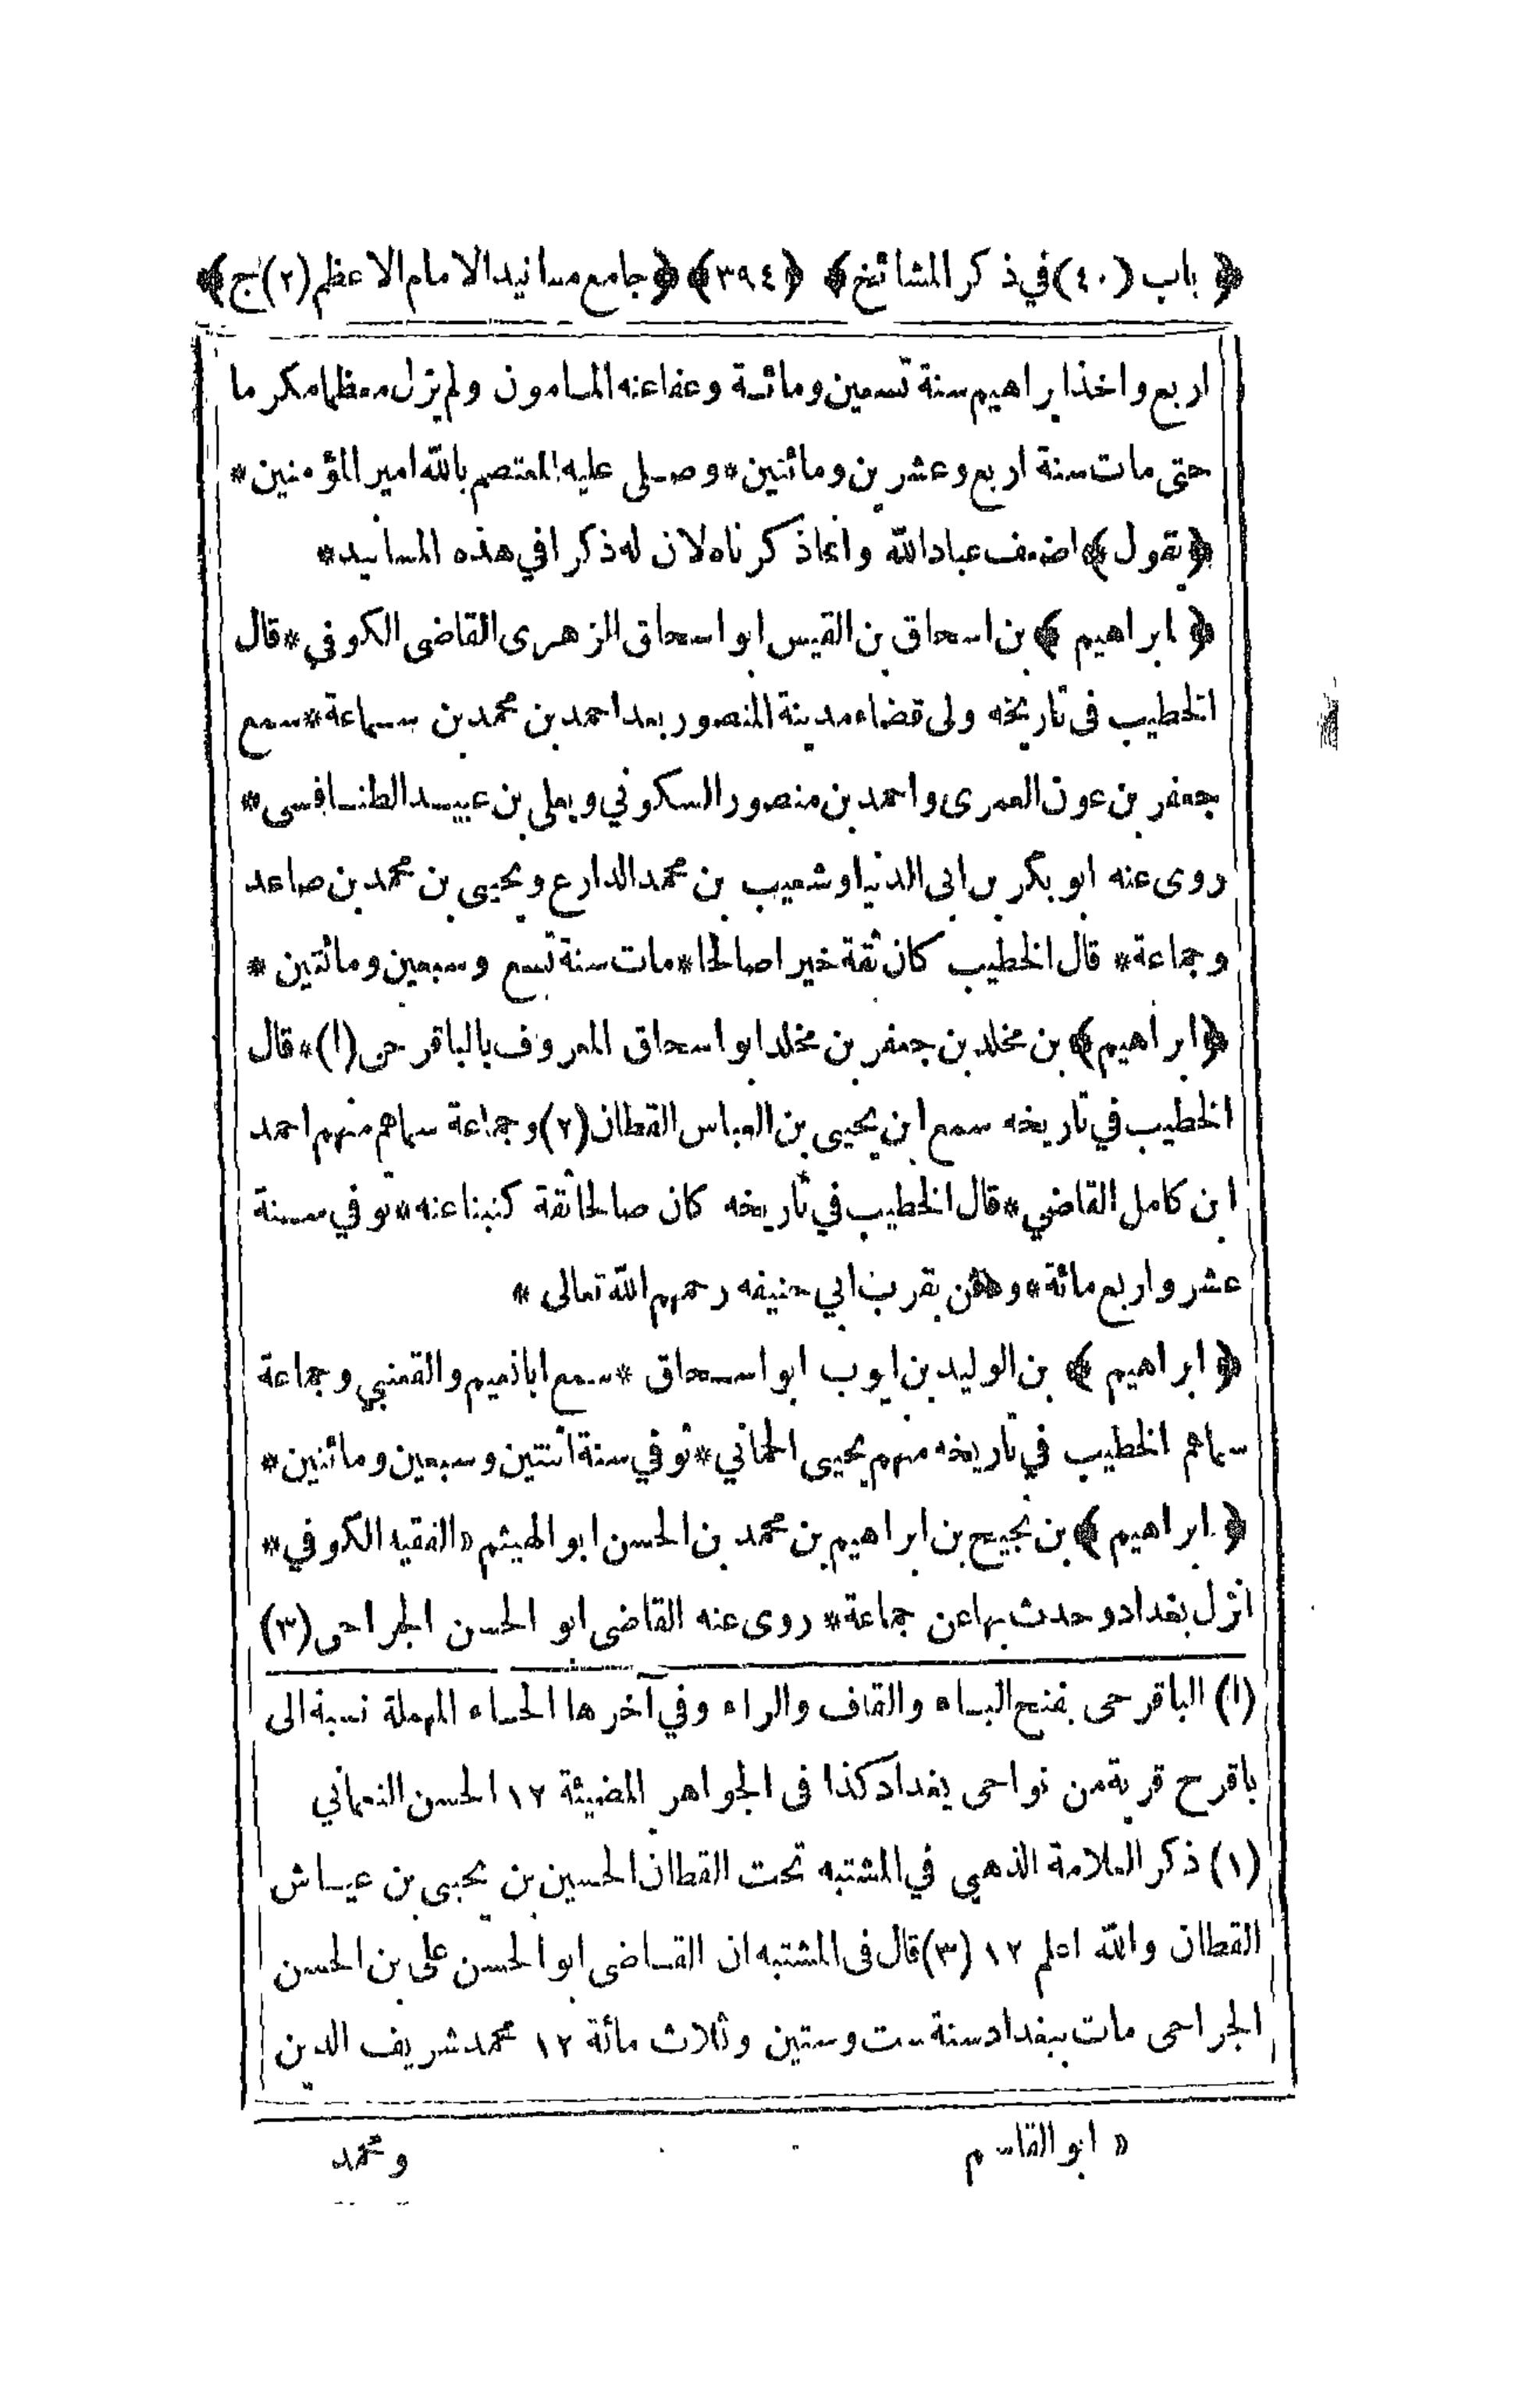 ﴿ باب (٤٠) في ذكر المشائخ ﴾ ﴿ ٣٩٤ ﴾ ﴿ جامع مسانيد الامام الاعظم (٢) ج ﴾
اربع واخذ ابراهيم سنة تسعين ومائة وعفا عنه المامون ولم يزل معظما مكرما
حتى مات سنة اربع وعشرين ومائتين * وصلى عليه المعتصم بالله امير المؤمنين *
﴿ يقول ﴾ اضعف عباد الله وانما ذكرناه لان له ذكرا في هذه المسانيد *
﴿ ابراهيم ﴾ بن اسحاق بن القيس ابو اسحاق الزهرى القاضى الكوفي * قال
الخطيب في تاريخه ولى قضاء مدينة المنصور بعد احمد بن محمد بن سماعة * سمع
جعفر بن عون العمرى واحمد بن منصور السكوني ويعلى بن عبيد الطنافسى *
روى عنه ابو بكر بن ابى الدنيا وشعيب بن محمد الدارع ويحيى بن محمد بن صاعد
وجماعة * قال الخطيب كان ثقة خيرا صالحا * مات سنة تسع وسبعين ومائتين *
﴿ ابراهيم ﴾ بن مخلد بن جعفر بن مخلد ابو اسحاق المعروف بالباقرحى (١) * قال
الخطيب في تاريخه سمع ابن يحيى بن العباس القطان (٢) وجماعة سماهم منهم احمد
ابن كامل القاضي * قال الخطيب في تاريخه كان صالحا ثقة كتبنا عنه * توفي سنة
عشر واربع مائة * ودفن بقرب ابي حنيفه رحمهم الله تعالى *
﴿ ابراهيم ﴾ بن الوليد بن ايوب ابو اسحاق * سمع اباذميم والقعنبي وجماعة
سماهم الخطيب في تاريخه منهم يحيى الحماني * توفي سنة اثنتين وسبعين ومائتين *
﴿ ابراهيم ﴾ بن نجيح بن ابراهيم بن محمد بن الحسن ابو الهيثم « الفقيه الكوفي *
انزل بغداد وحدث بها عن جماعة * روى عنه القاضى ابو الحسن الجراحى (٣)
(١) الباقرحى بفتح الباء والقاف والراء وفي آخرها الحاء المهملة نسبة الى
باقرح قرية من نواحى بغداد كذا فى الجواهر المضيئة ١٢ الحسن النعماني
(١) ذكر العلامة الذهبي في المشتبه تحت القطان الحسين بن يحيى بن عياش
القطان والله اعلم ١٢ (٣) قال فى المشتبه ان القاضى ابو الحسن على بن الحسن
الجراحى مات ببغداد سنة ست وستين وثلاث مائة ١٢ محمد شريف الدين
« ابو القاسم
ومحمد